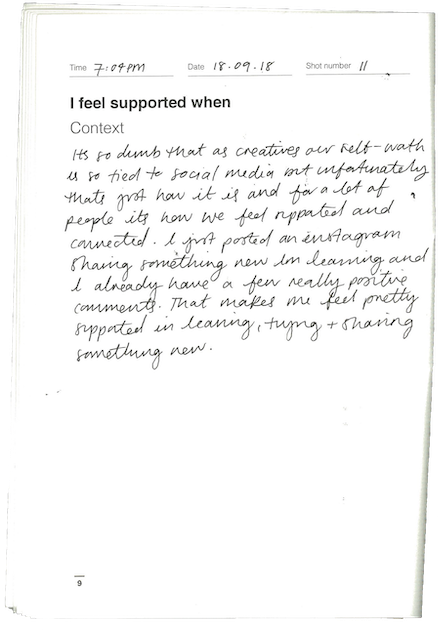 Time 7:04PM Date 18.09.18 Shot number 11
I feel supported when
Context
Its so dumb that as creatives our self-wath
is so tied to social media but unfortunately
thats just how it is and for a lot of
people its how we feel supported and
connected. I just posted an instagram
sharing something new Im learning and
I already have a few really positive
comments. That makes me feel pretty
supported in learning, trying + sharing
something new.
9